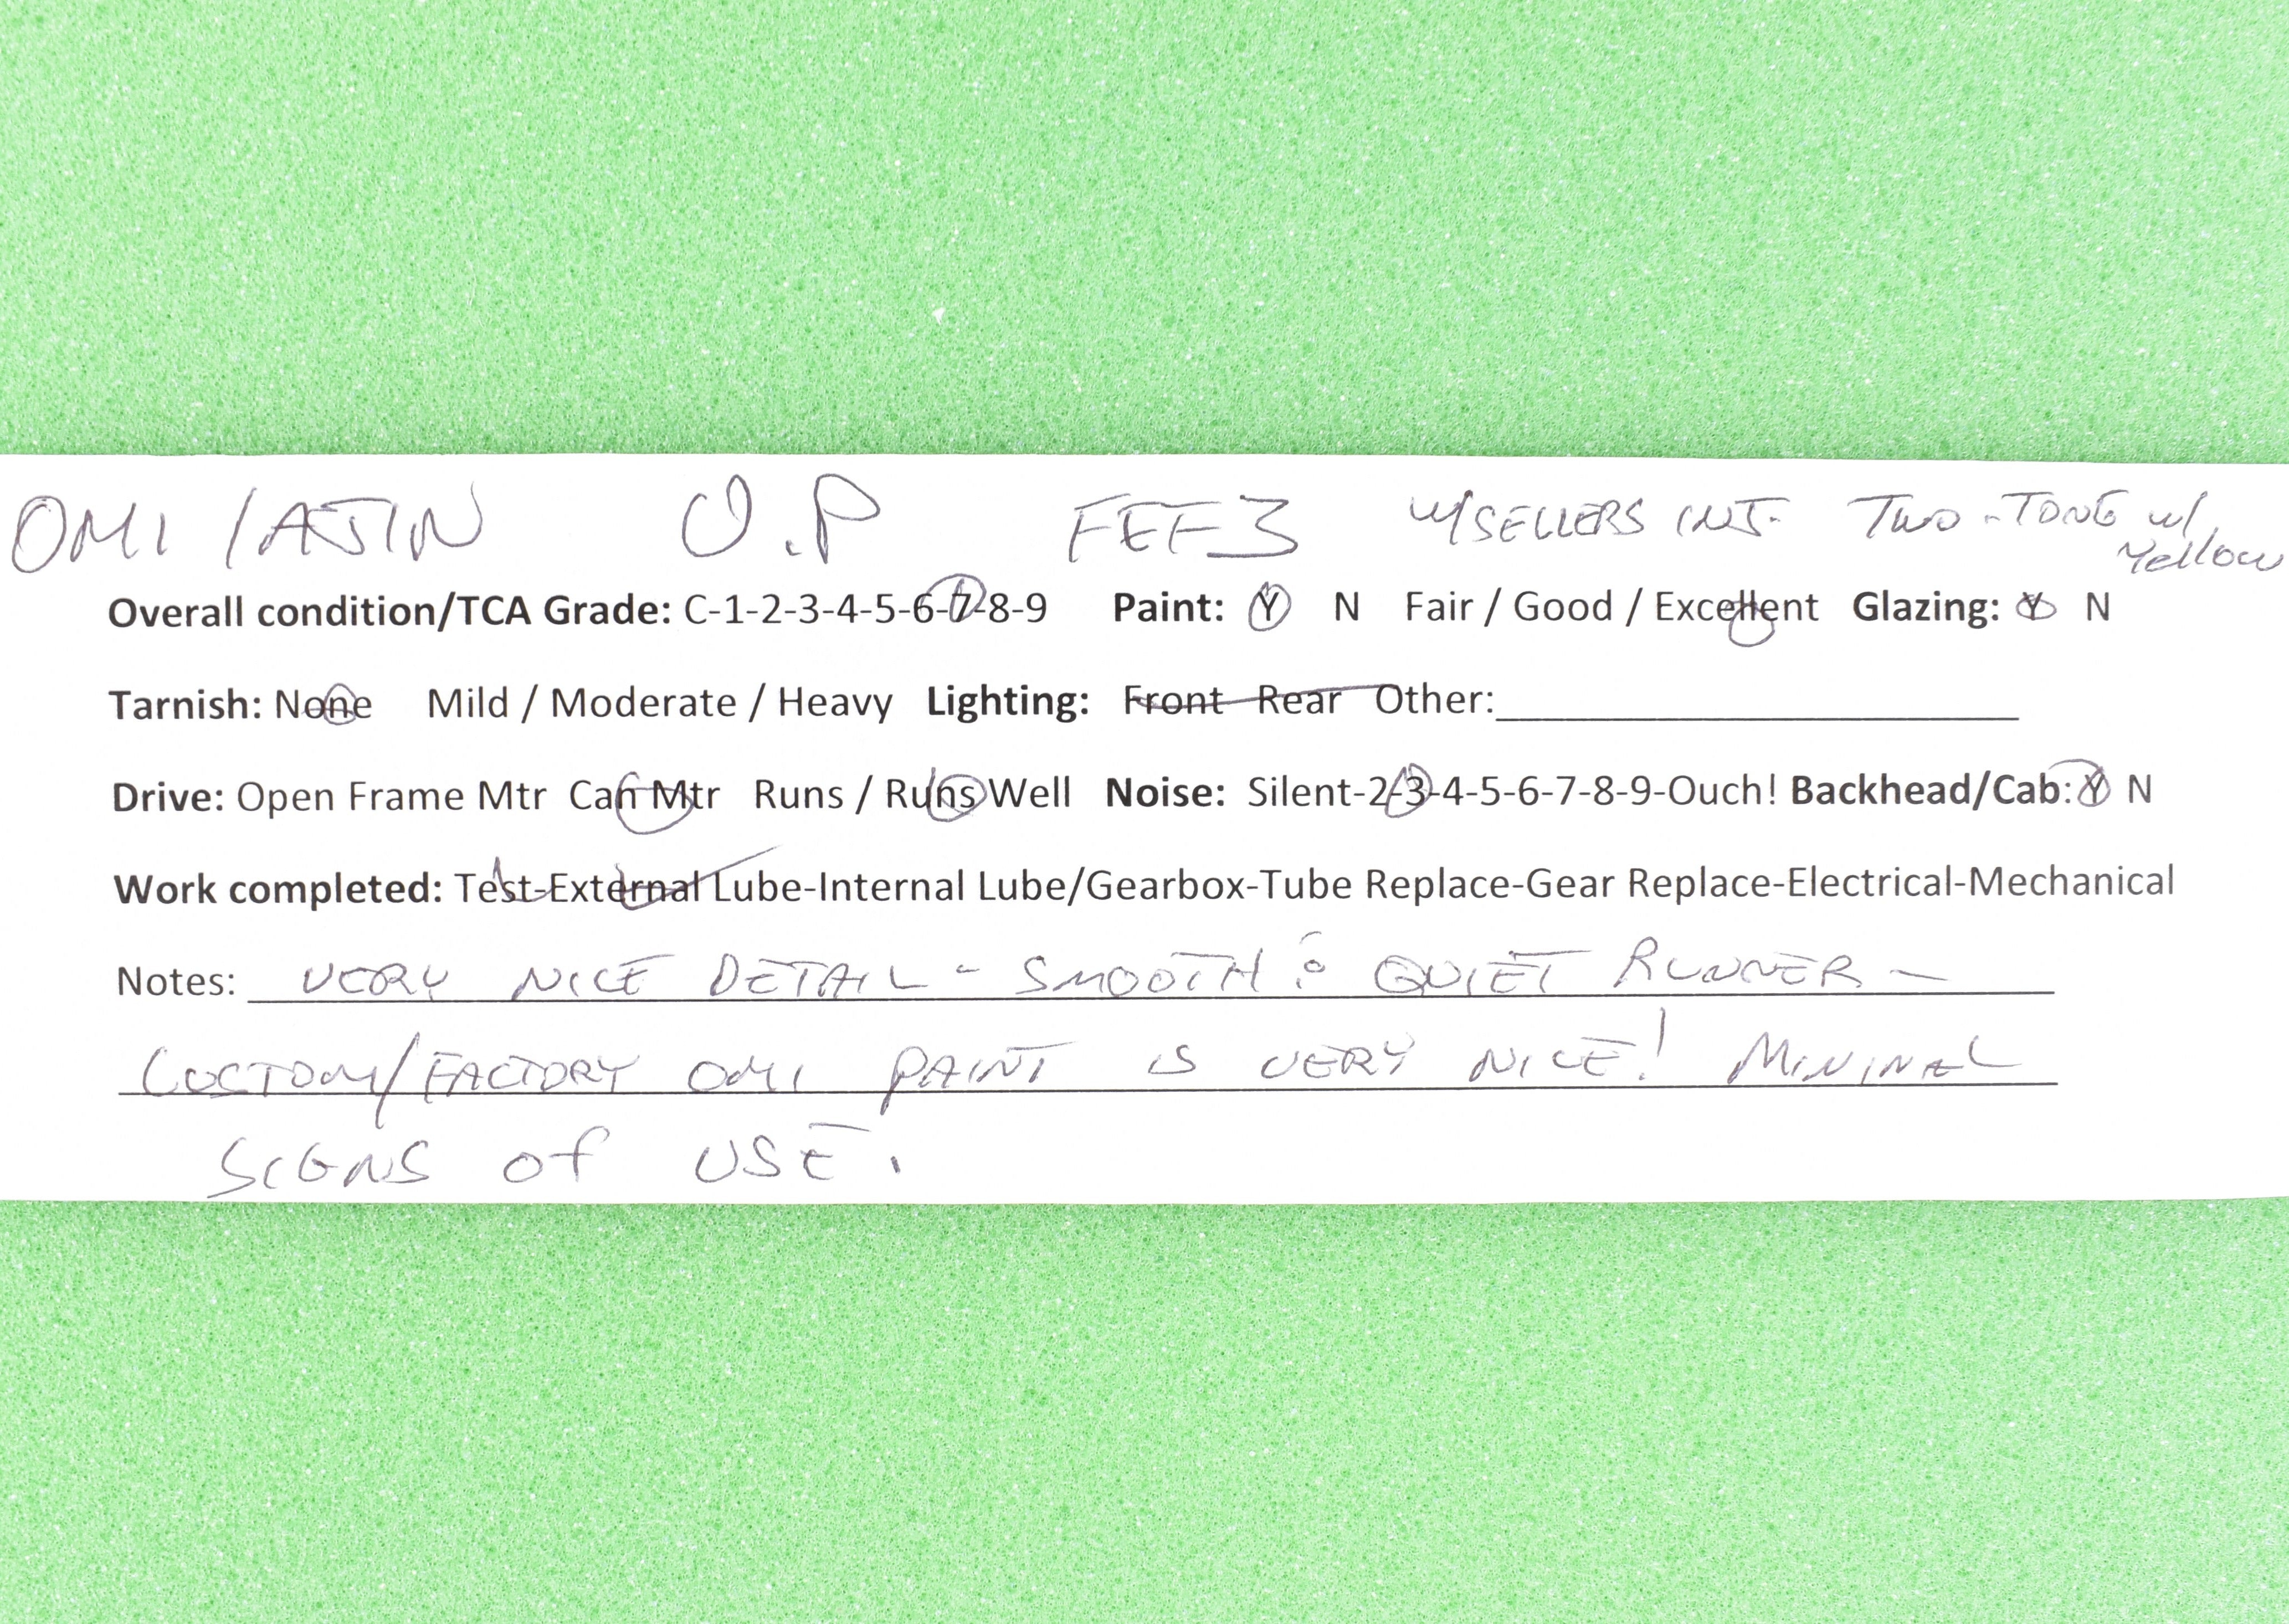 OMI / AJIN U.P FEF3 w/SELLERS INJ. TWO-TONE w/
Yellow
Overall condition/TCA Grade: C-1-2-3-4-5-6-7-8-9 Paint: Y N Fair / Good / Excellent Glazing: Y N
Tarnish: None Mild / Moderate / Heavy Lighting: Front Rear Other:
Drive: Open Frame Mtr Can Mtr Runs / Runs Well Noise: Silent-2-3-4-5-6-7-8-9-Ouch! Backhead/Cab: Y N
Work completed: Test-External Lube-Internal Lube/Gearbox-Tube Replace-Gear Replace-Electrical-Mechanical
Notes: VERY NICE DETAIL - SMOOTH & QUIET RUNNER -
CUSTOM/FACTORY OMI PAINT IS VERY NICE! MINIMAL
SIGNS OF USE.